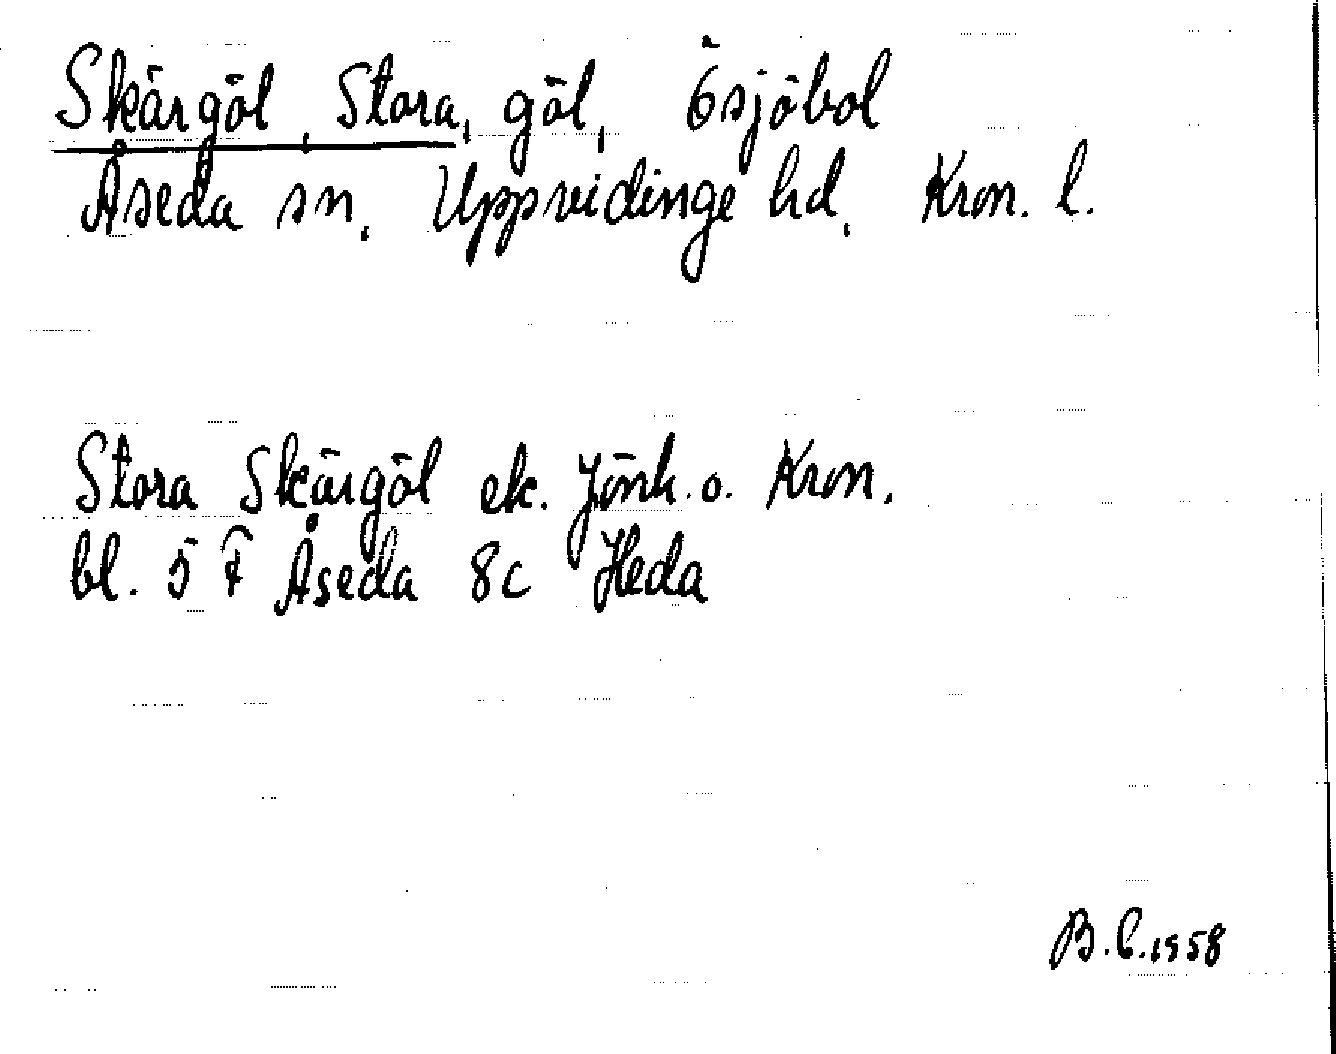 Skärgöl, Stora, göl, Ösjöbol
Åseda sn. Uppvidinge hd. Kron. l.
Stora Skärgöl ek. Jönk. o. Kron.
bl. 5 F Åseda 8c Heda
B.C. 1958